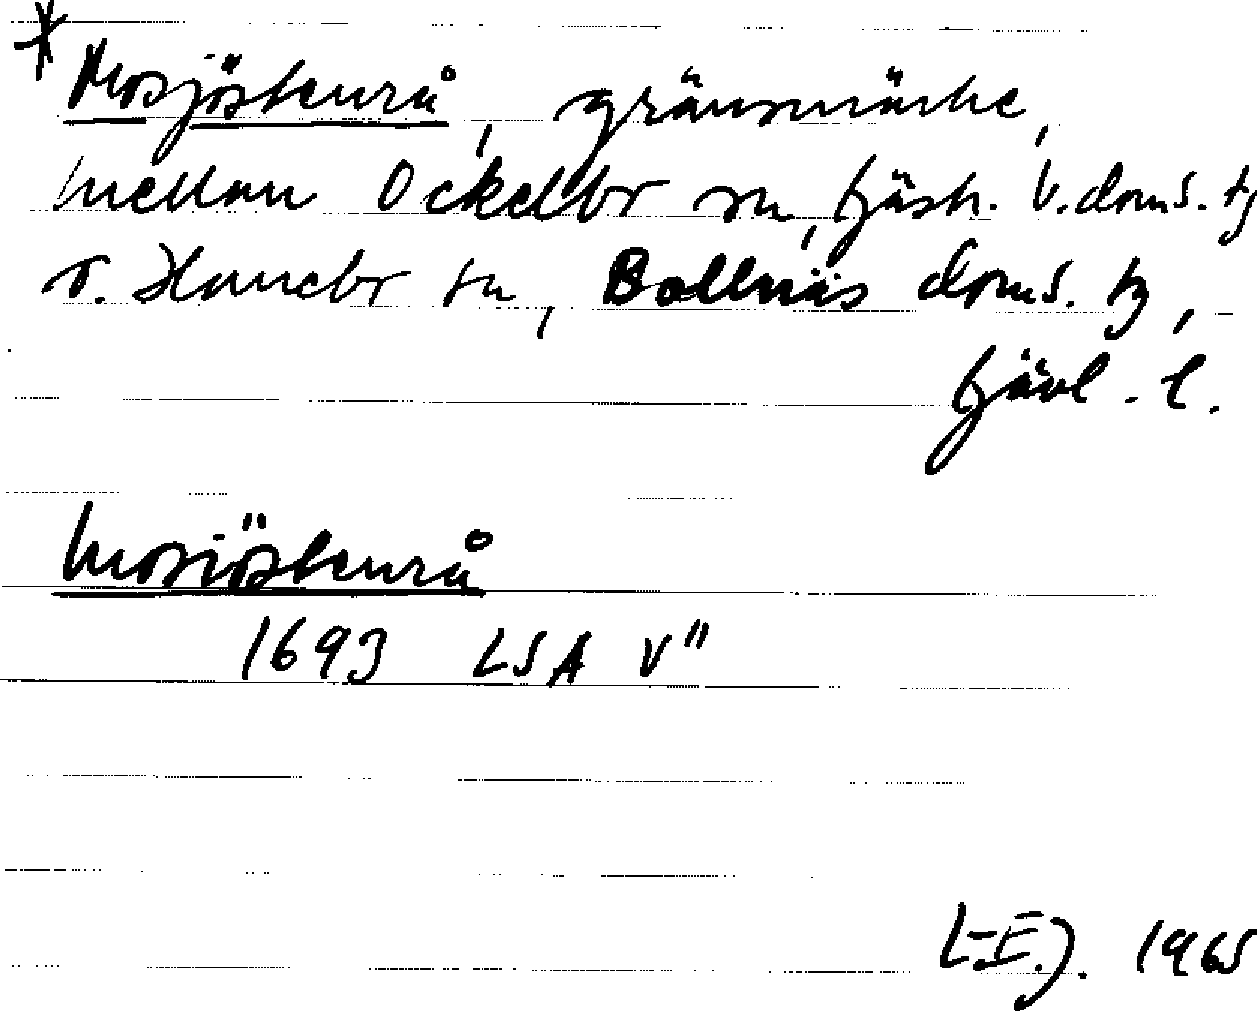 * Mosjöstenrå, gränsmärke,
mellan Ockelbo sn, Gästr. V. doms. tg
o. Hanebo sn, Bollnäs doms. tg,
Gävl. l.
Mosiöstenrå
1693 LSA V"
L-E.J. 1965